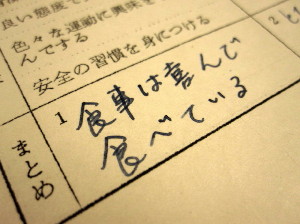 良い態度で
色々な運動に興味を
んでする
安全の習慣を身につける
1 食事は喜んで
食べている
まとめ
2